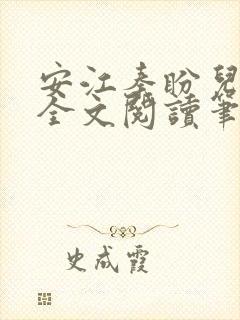 安江秦盼兒
全文閱讀筆
史成霞